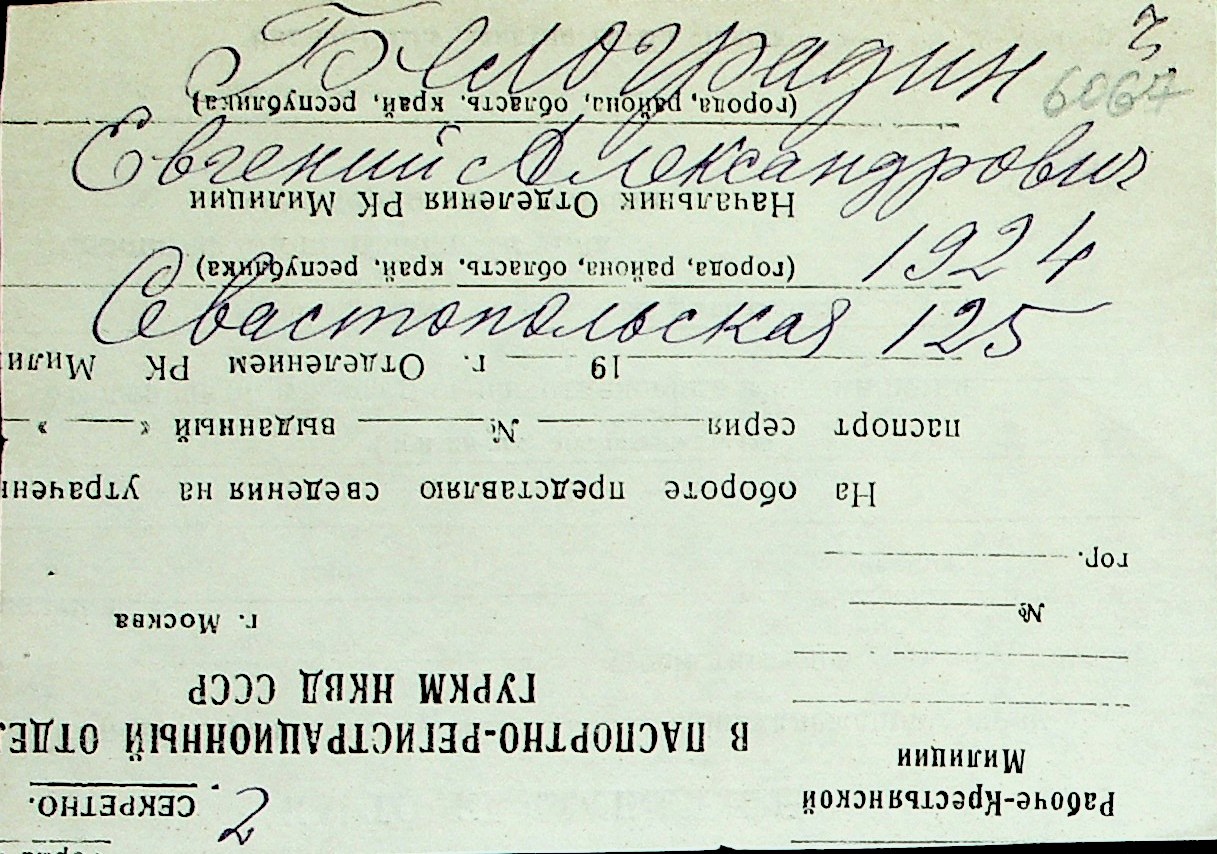 Белоградин
6067
Евгений Александрович
1924
Севастопольская 125
Рабоче-Крестьянской
Милиции
№
гор.
2
СЕКРЕТНО.
В ПАСПОРТНО-РЕГИСТРАЦИОННЫЙ ОТДЕ
ГУРКМ НКВД СССР
г. Москва
На обороте представляю сведения на утрачен
паспорт серия № выданный « »
19 г. Отделением РК Мили
(города, района, область, край, республика)
Начальник Отделения РК Милиции
(города, района, область, край, республика)